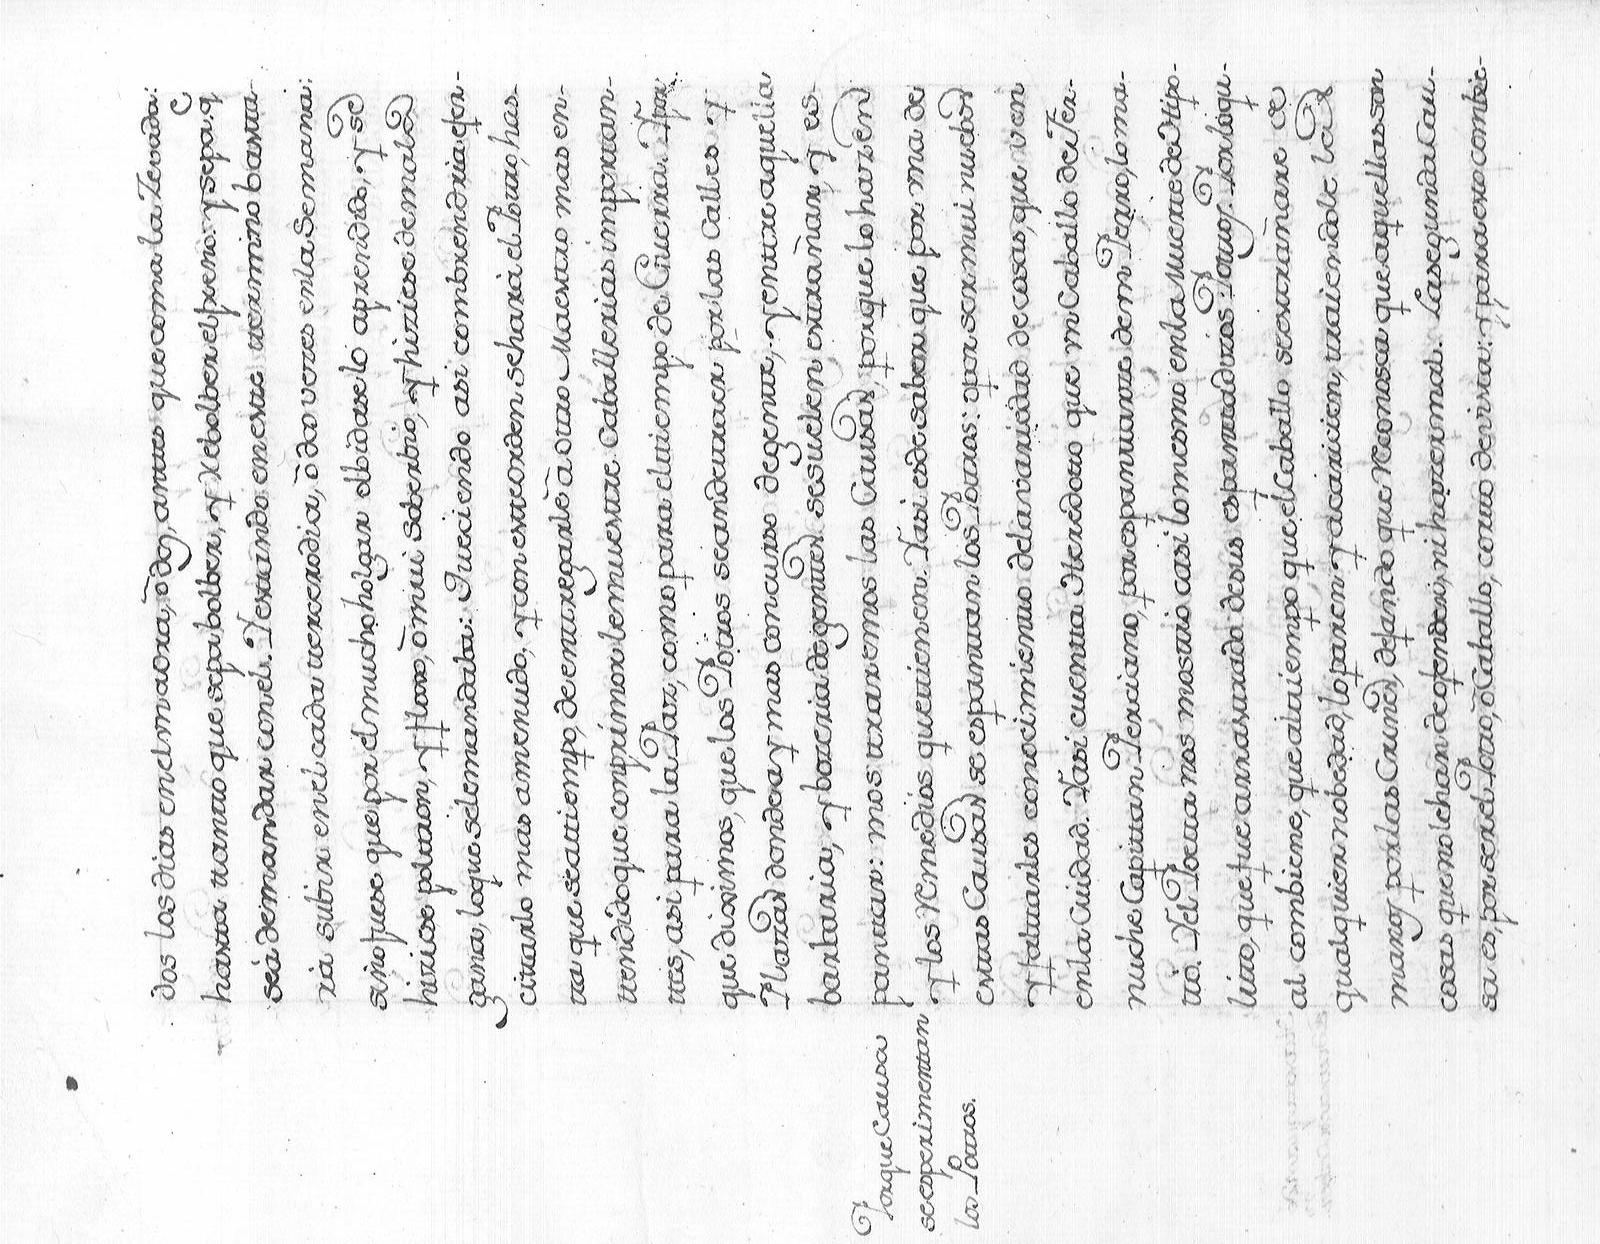 dos los dias en el maora, ò dos, antes que coma la Zevada:
hasta tanto que sepa bolber, y Rebolber el freno: y sepa, q̃
seà de mandar con el. Y estando en este termino basta-
rà subir en el cada tercero dia, ò dos veces en la Semana:
sino fuese que por el mucho holgar olbidase lo aprendido, y se
hiziese poltron, y floxo, ò mui soberbio, y hiziese de mala
gana, lo que se le mandaba: Que siendo asi combiendria exer-
citarlo mas a menudo, y con este orden se harà el Potro, has-
ta que sea tiempo, de entregarle à otro Maestro mas en-
tendido que con primor le muestre Caballerias importan-
tes, asi para la Paz, como para el tiempo de Guerra. Y por
que diximos, que los Potros se an de traer por las Calles y
Plazas donde ay mas concurso de gente, y entre aquella
barbaria, y bozeria de gentes se suelen estrañar, y es-
pantar: mostraremos las Causas, porque lo hazen
y los Remedios que tienen. Y asi es de saber que por una de
estas Causas se espantan los Potros: o por ser mui nuebos
y faltarles conocimiento de la variedad de cosas, que ven
en la Ciudad. Y asi cuenta Herodoto que un Caballo de Fer-
nuche Capittan Persiano, por espantarse de un Perro, lo ma-
tò. Y el Poeta nos mostrò casi lo mesmo en la Muerte de Hipo-
lito, que fue arrastrado de sus espantadizos Potros. Por lo qu-
al combiene, que al tiempo que, el Caballo se estrañare de
qualquier nobedad, lo paren y acaricien, traiendole las
manos por las Crines, dejando que Reconosca que aquellas son
cosas que no le han de ofender, ni hazer mal. La segunda Cau-
sa es, por ser el Potro, ò Caballo, corto de vista: y para esto combie-
Porque Causa
se experimentan
los Potros.